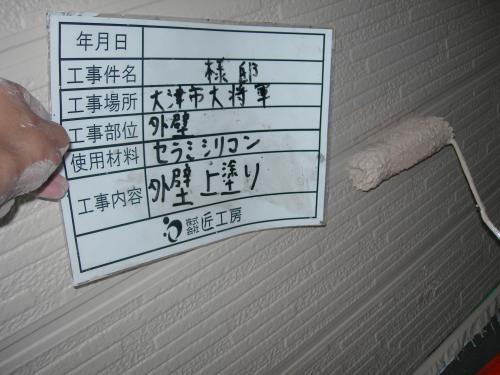 年月日
工事件名 様邸
工事場所 大津市大将軍
工事部位 外壁
使用材料 セラミシリコン
工事内容 外壁上塗り
株式会社 匠工房